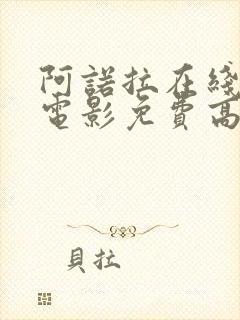 阿諾拉在綫
電影免費高
貝拉